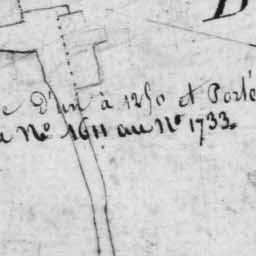 e d'un à 1250 et Porté
u Nº 1611 au Nº 1733.